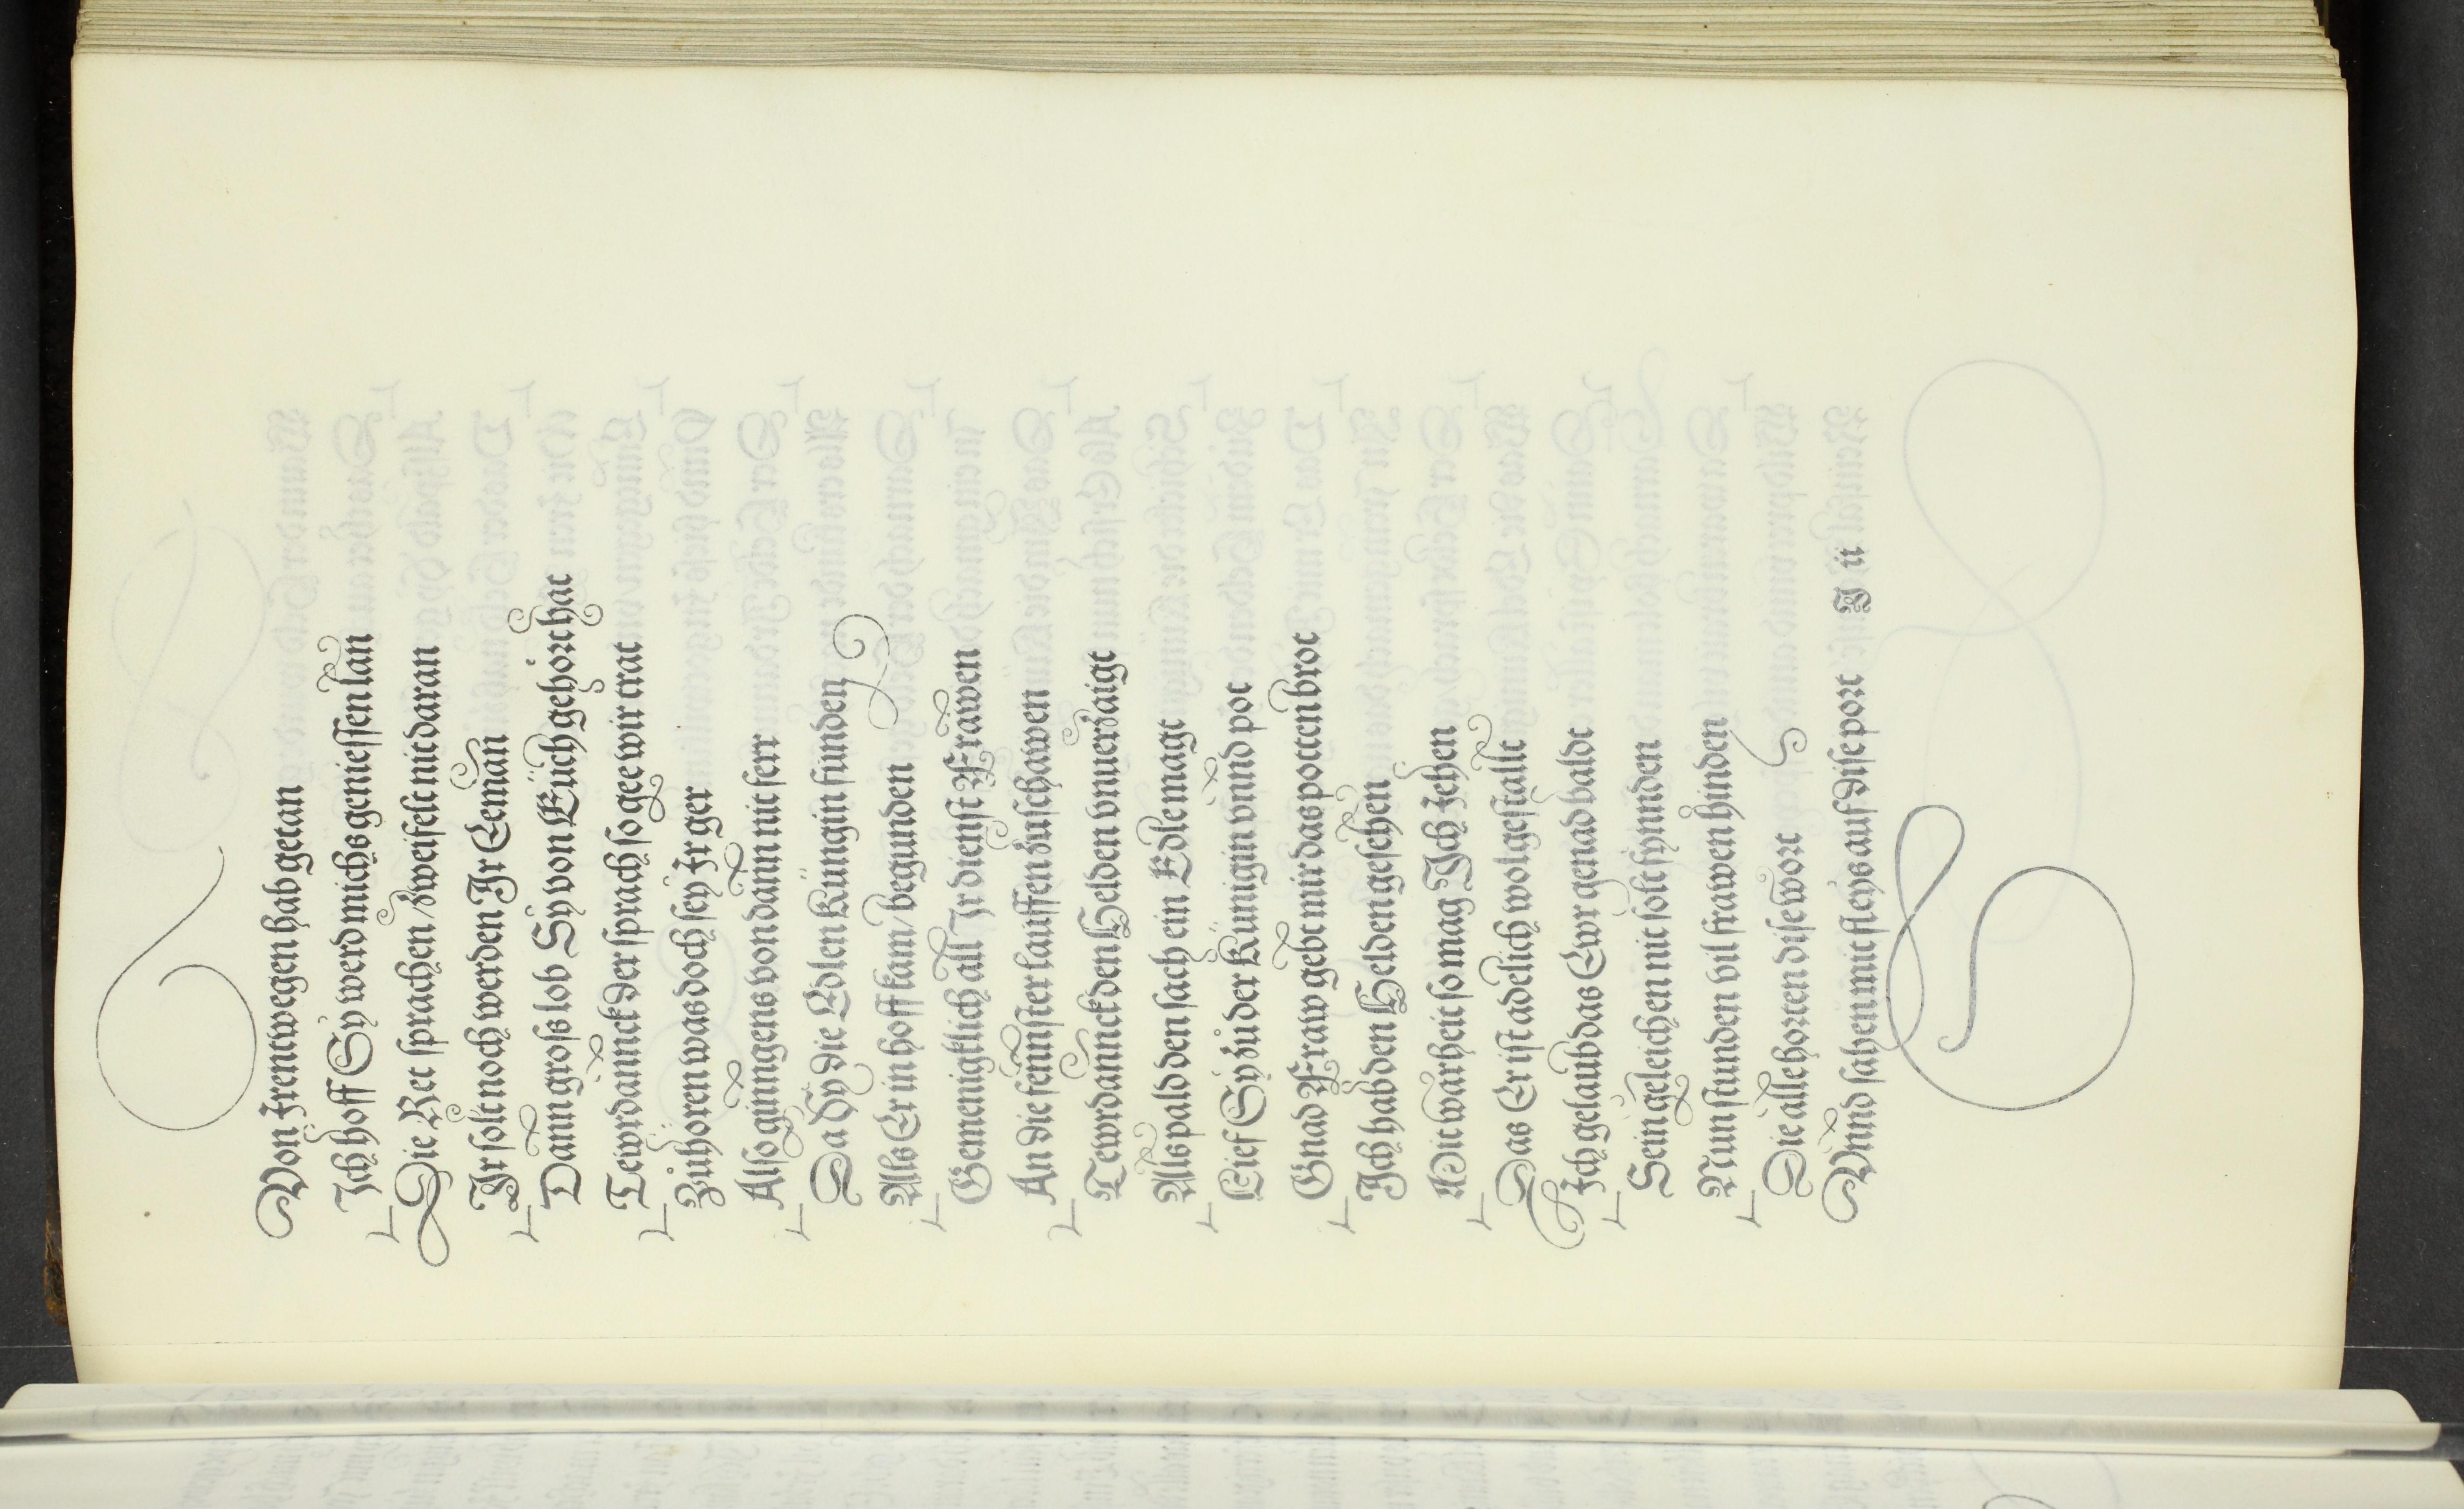 Von Irentwegen hab getan
Ich hoff Sy werd michs geniessen lan
Die Ret sprachen / zweifelt nit daran
Ir solt noch werden Ir Leman
Dann gross lob Sy von Eüch gehört hat
Tewrdannck der sprach so gee wir trat
Zůhören was doch sey Ir ger
Also ginngens von dann nit ferr
Da Sy die Edlen Küngin funden
Als Er in hoff kam / begunden
Gemenigklich all Ir dienst Frawen
An die fennster lauffen zuschawen
Tewrdannck den Helden vnuerzaigt
Alspald den sach ein Edle magt
Lief Sy zů der Künigin vnnd pot
Gnad Fraw gebt mir das pottenbrot
Ich hab den Helden gesehen
Mit warheit so mag Ich Iehen
Das Er ist adelich wolgestallt
Ich gelaub das Ewr genad baldt
Seingeleichen nit solt fynnden
Nun stunden vil frawen hinden
Die alle horten dise wort
Vnnd sahen mit fleys auf dise port I ii